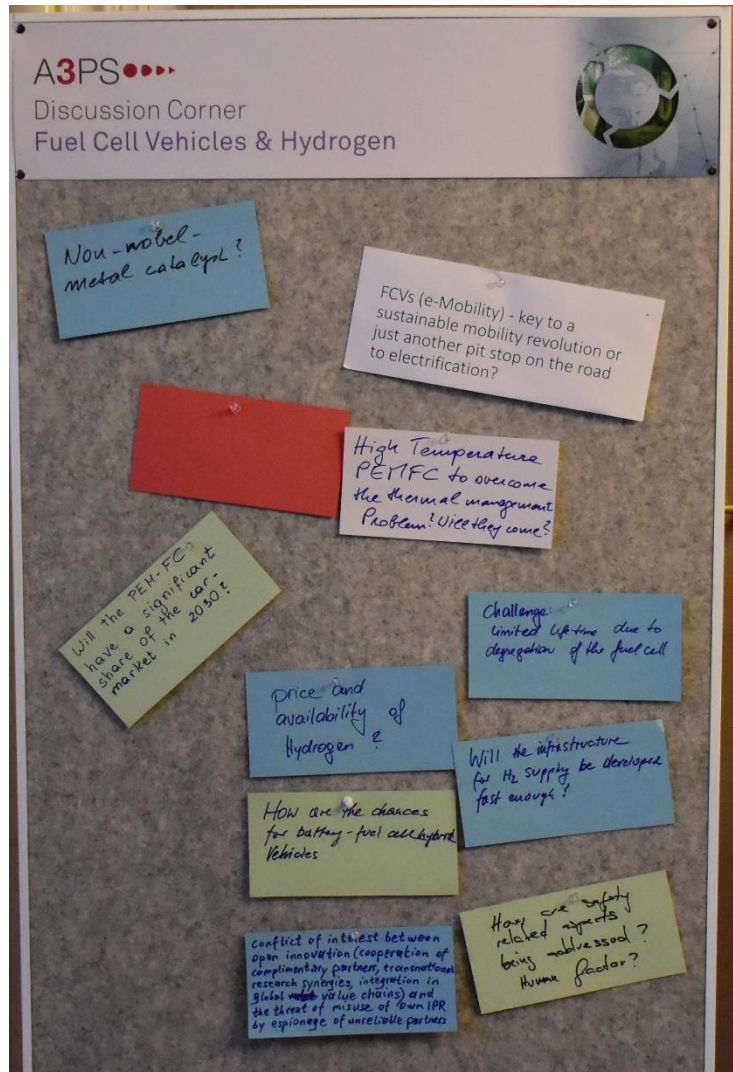 A3PS
Discussion Corner
Fuel Cell Vehicles & Hydrogen
Non-nobel-
metal catalyst?
FCVs (e-Mobility) - key to a
sustainable mobility revolution or
just another pit stop on the road
to electrification?
High Temperature
PEMFC to overcome
the thermal management
Problem? Will they come?
Will the PEM-FC
have a significant
share of the car-
market in 2030?
Challenge:
Limited life time due to
degregation of the fuel cell
price and
availability of
Hydrogen?
Will the infrastructure
for H2 supply be developed
fast enough?
How are the chances
for battery-fuel cell hybrid
Vehicles
How are safety
related aspects
being addressed?
Human factor?
conflict of interest between
open innovation (cooperation of
complimentary partners, transnational
research synergies, integration in
global value chains) and
the threat of misuse of own IPR
by espionage of unreliable partners